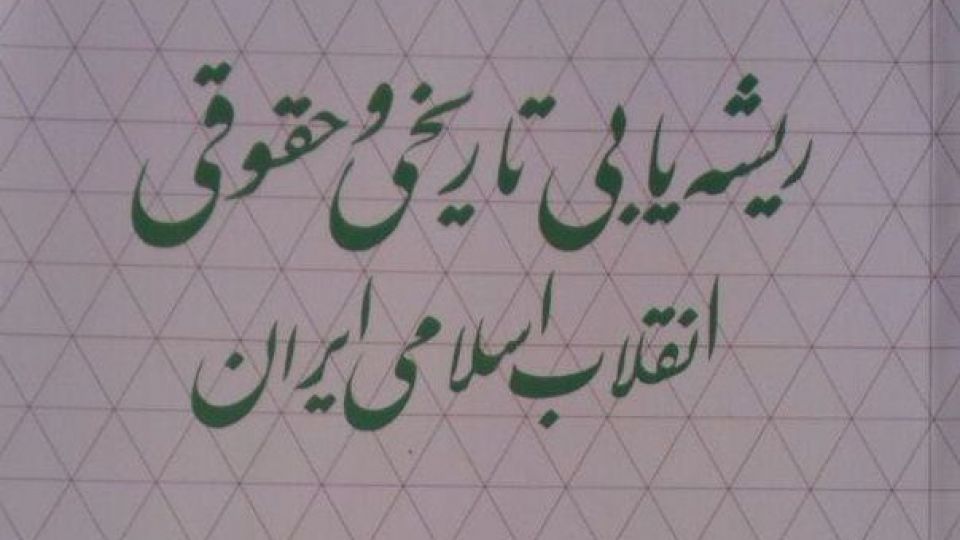 ریشه یابی تاریخی و حقوقی
انقلاب اسلامی ایران